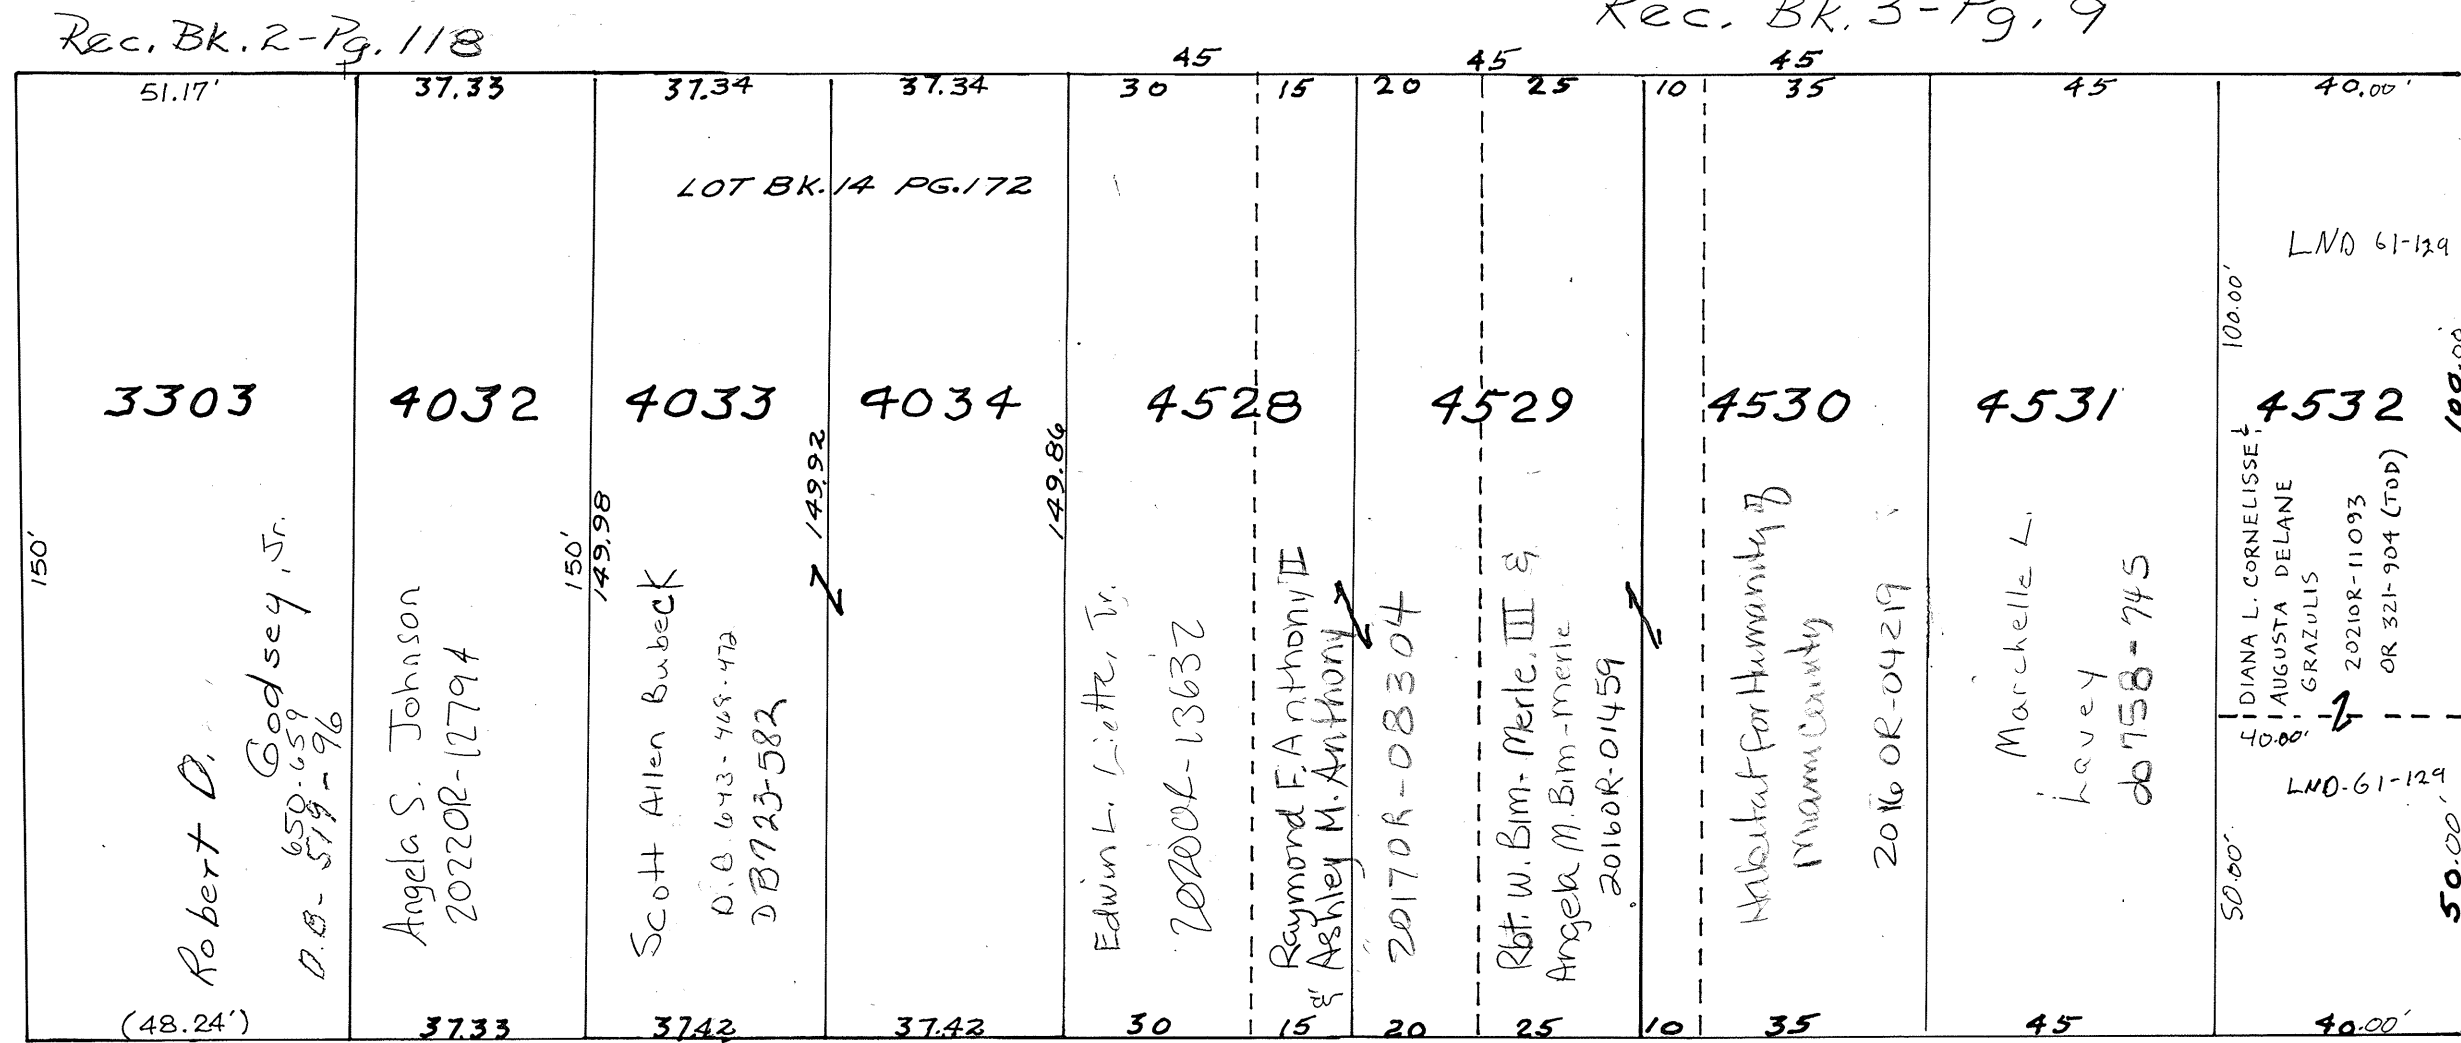 Rec. Bk. 2-Pg. 118
Rec. Bk. 3-Pg. 9
45 45 45
51.17' 37.33 37.34 37.34 30 15 20 25 10 35 45 40.00'
LOT BK. 14 PG. 172
LND 61-129
100.00'
100.00'
3303 4032 4033 4034 4528 4529 4530 4531 4532
150'
150'
149.98
149.92
149.86
Robert D.
Godsey, Jr.
650-659
D.B- 519-96
Angela S. Johnson
2022OR-12794
Scott Allen Bubeck
D.B. 643-469-472
DB723-582
Edwin L. Liette, Jr.
2020OR-13637
Raymond F. Anthony II
& Ashley M. Anthony
2017OR-08304
Rbt. W. Bim-Merle, III &
Angela M. Bim-Merle
2016OR-01459
Habitat for Humanity of
Miami County
2016OR-04219
Marchelle L.
Lavey
db758-745
DIANA L. CORNELISSE &
AUGUSTA DELANE
GRAZULIS
2021OR-11093
OR 321-904 (TOD)
40.00'
LND-61-129
50.00'
50.00'
(48.24') 37.33 37.42 37.42 30 15 20 25 10 35 45 40.00'